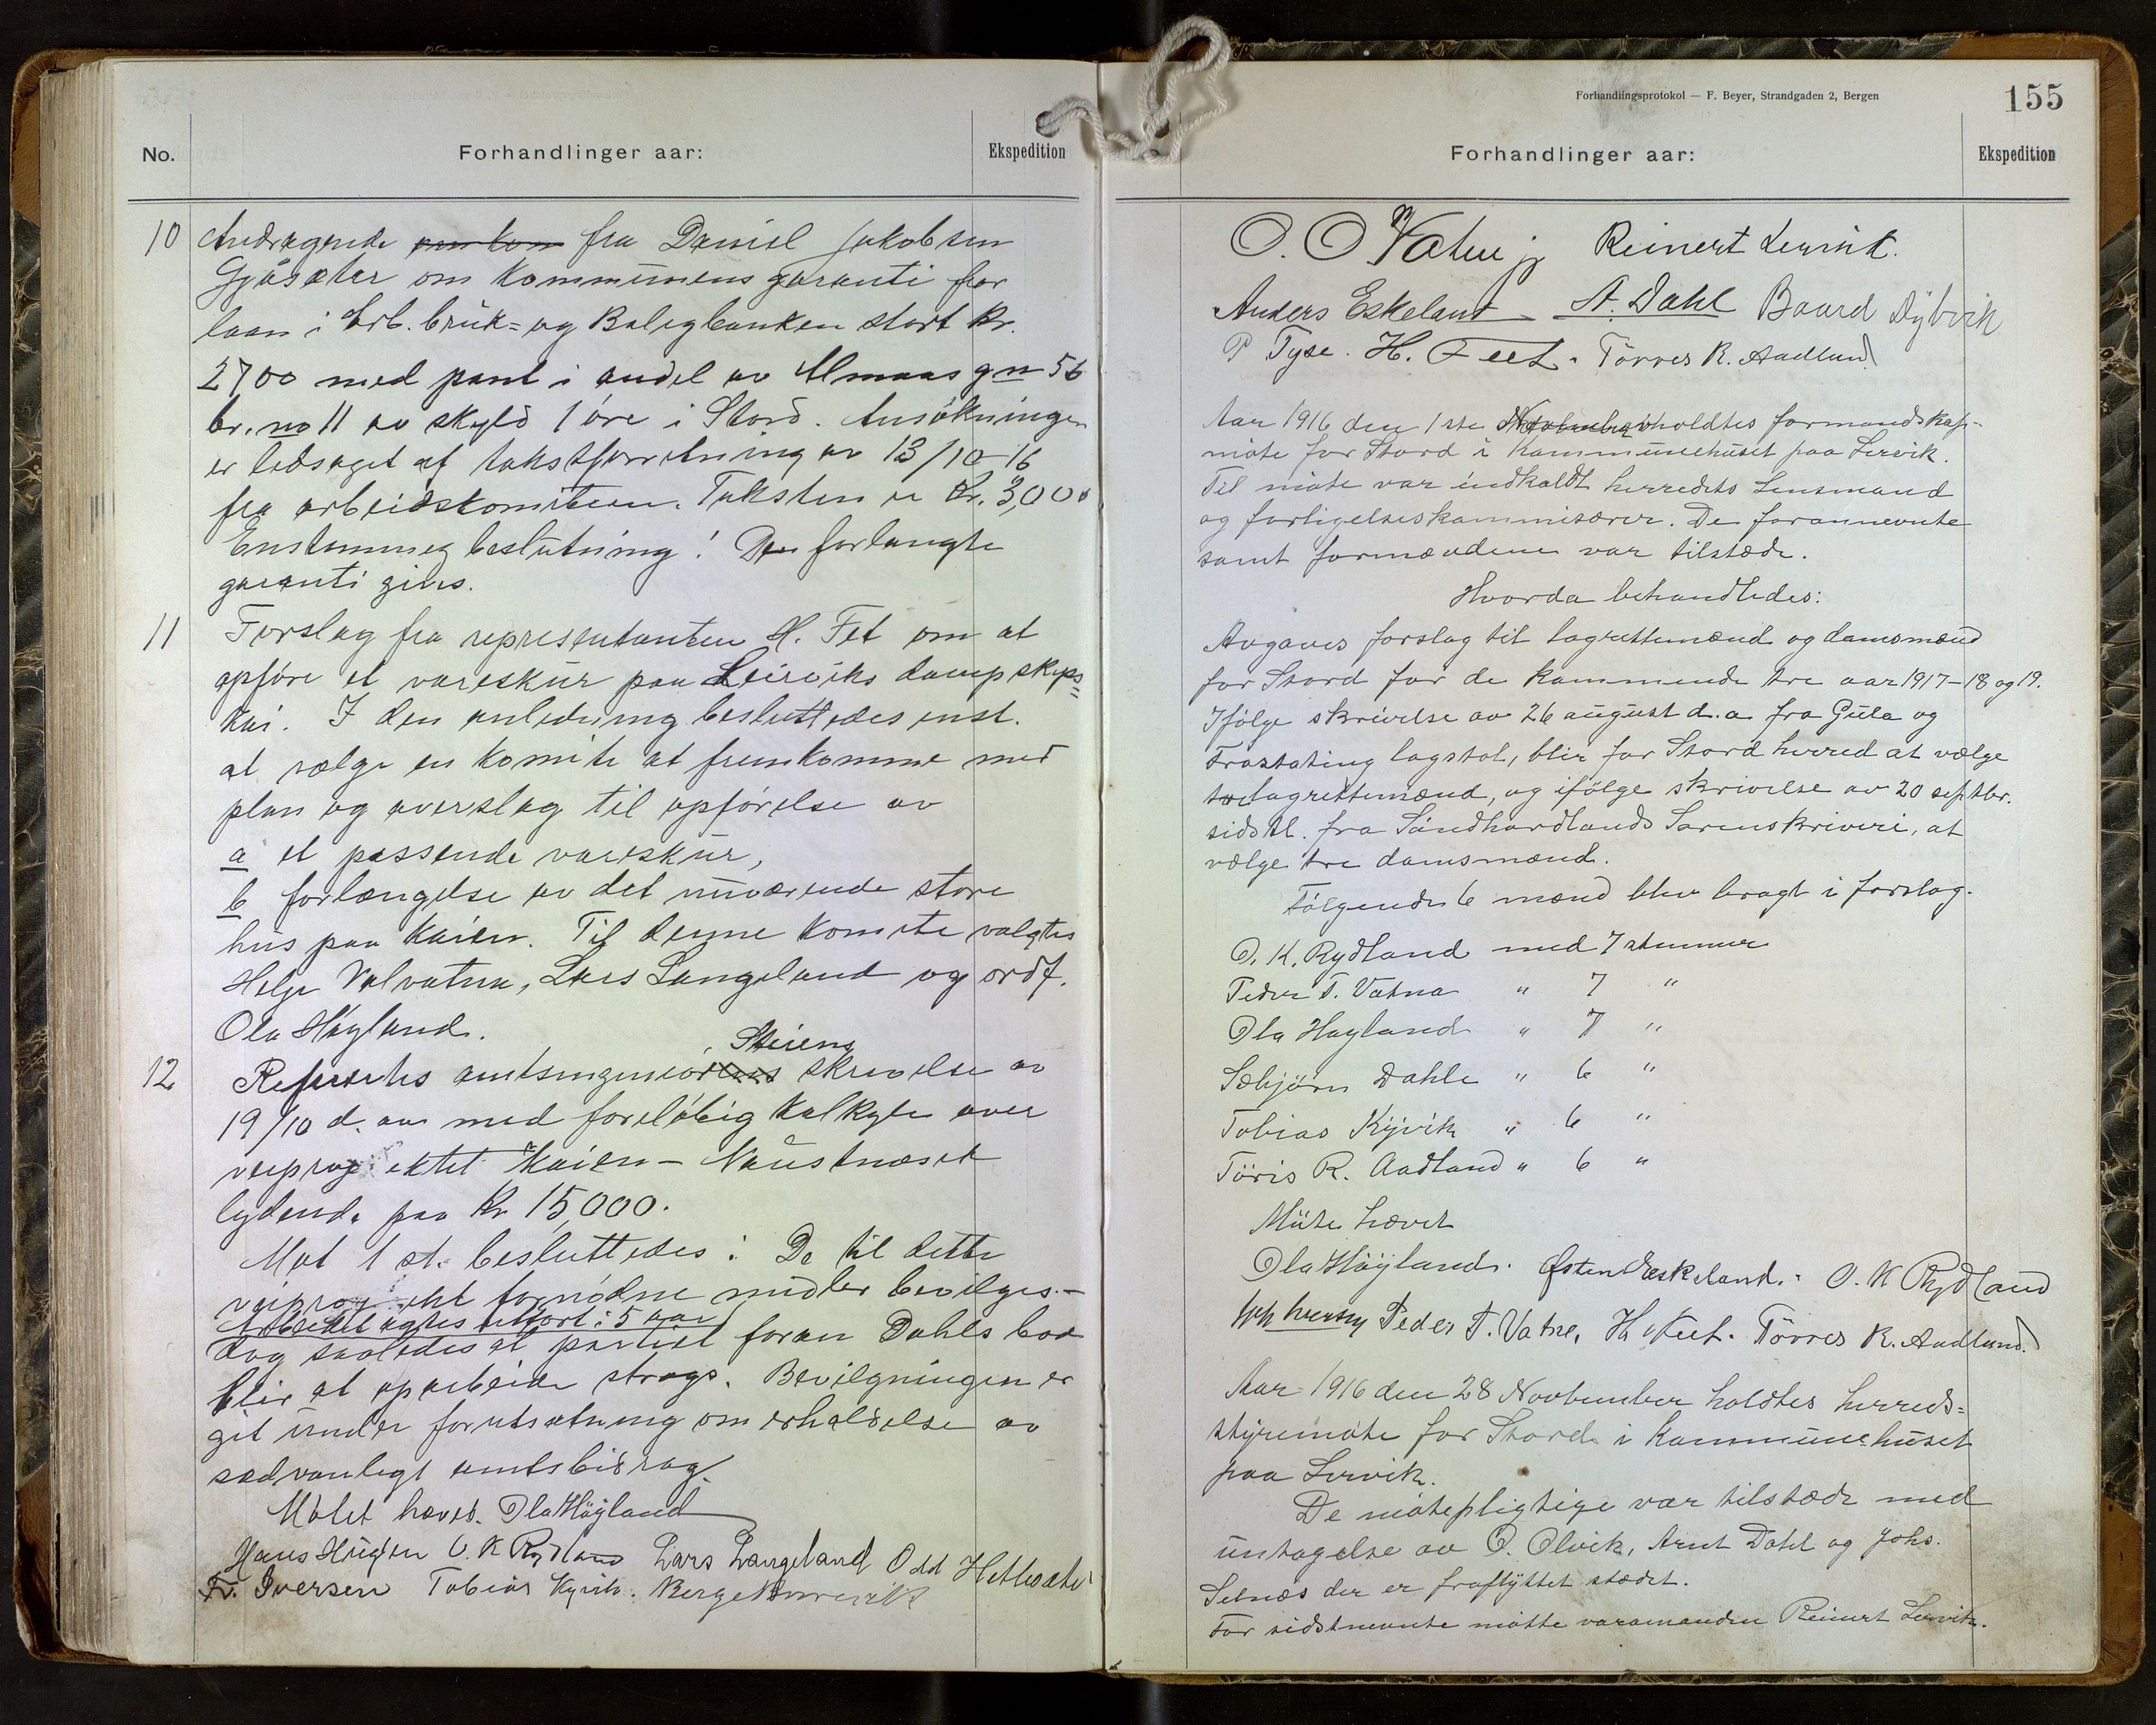 No.
Forhandlinger aar:
Ekspedition
10 Andragende fra Daniel Jakobsen
Gjøsæter om kommunens garanti for
laan i Arb. bruk= og Boligbanken stort kr.
2700 med pant i andel av Almaas gn 56
br. no 11 av skyld 1 øre i Stord. Ansökningen
er ledsaget af takstforretning av 13/10-16
fra arbeidskomiteen. Taksten er kr. 3,000
Enstemmig beslutning! Den forlangte
garanti gives.
11 Forslag fra representanten H. Fet om at
opføre et vareskur paa Leirviks dampskips=
kai. I den anledning besluttedes enst.
at vælge en komite at fremkomme med
plan og overslag til opførelse av
a et passende vareskur,
b forlængelse av det nuværende store
hus paa kaien. Til denne komite valgtes
Helje Valvatna, Lars Langeland og ordf.
Ola Høyland.
Steiens
12 Refertes amtsingeniör skrivelse av
19/10 d. aa med foreløbig kalkyle over
veiprojektet Kaien – Naustnæset
lydende paa kr 15,000.
Mot 1 st. besluttedes: De til dette
veiprojekt fornødne midler bevilges.-
Arbeidet agtes utført i 5 aar
dog saaledes at partiet foran Dahls bod
blir at oparbeide straks. Bevilgningen er
git under forutsætning om erholdelse av
sædvanligt amtsbidrag.
Møtet hævet. Ola Høyland
Hans Hugøen O. K Rydland Lars Langeland Odd Hetlesæter
Fr. Iversen Tobias Kyvik. Berge
Forhandlingsprotokol — F. Beyer, Strandgaden 2, Bergen
155
Forhandlinger aar:
Ekspedition
O. O Vatne jr Reinert Lervik.
Anders Eskeland A. Dahl Baard Dybvik
P Tyse. H. Feet. Tørres R. Aadland
Aar 1916 den 1ste November holdtes formandskap-
møte for Stord i kommunehuset paa Lervik.
Til møte var indkaldt herredets Lensmand
og forligelseskommisærer. De forannevnte
samt formændene var tilstæde.
Hvorda behandledes:
Avgaves forslag til lagrettemænd og domsmænd
for Stord for de kommende tre aar 1917-18 og 19.
Ifølge skrivelse av 26 august d.a fra Gula og
Frostating lagstol, blir for Stord herred at vælge
to lagrettemænd, og ifølge skrivelse av 20 septbr.
sidstl. fra Søndhordlands Sorenskriveri, at
vælge tre domsmænd.
Følgende 6 mænd blev bragt i forslag.
O. K. Rydland med 7 stemmer
Peder T. Vatna " 7 "
Ola Høyland " 7 "
Sæbjørn Dahle " 6 "
Tobias Kyvik " 6 "
Töris R. Aadland " 6 "
Møte hævet
Ola Høyland. Østen Eskeland. O. K Rydland
Peder T. Vatne, H. Feet. Tørres R. Aadland.
Aar 1916 den 28 Novbember holdtes herreds=
styremøte for Stord i kommunehuset
paa Lervik.
De møtepligtige var tilstæde med
untagelse av O. Olvik, Arnt Dahl og Johs.
Selnæs der er fraflyttet stædet.
For sidstnevnte møtte varamanden Reinert Lervik.